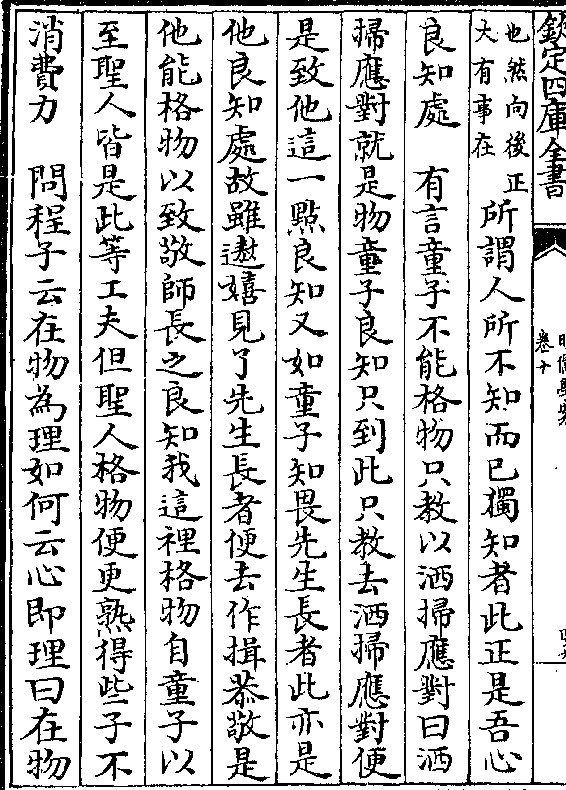 欽定四庫全書
明儒學案
卷十
也然向後正
大有事在
所謂人所不知而已獨知者此正是吾心
良知處　有言童子不能格物只教以洒掃應對曰洒
掃應對就是物童子良知只到此只教去洒掃應對便
是致他這一點良知又如童子知畏先生長者此亦是
他良知處故雖遨嬉見了先生長者便去作揖恭敬是
他能格物以致敬師長之良知我這裡格物自童子以
至聖人皆是此等工夫但聖人格物便更熟得些子不
消費力　問程子云在物為理如何云心即理曰在物